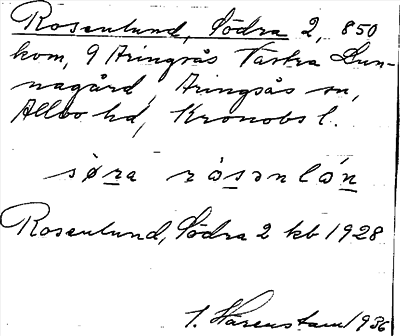 Rosenlund, Södra 2, 850
kom, 9 Aringsås Västra Lun-
nagård, Aringsås sn,
Allbo hd, Kronobs l.
søra ròsənlón
Rosenlund, Södra 2 kb 1928
1936